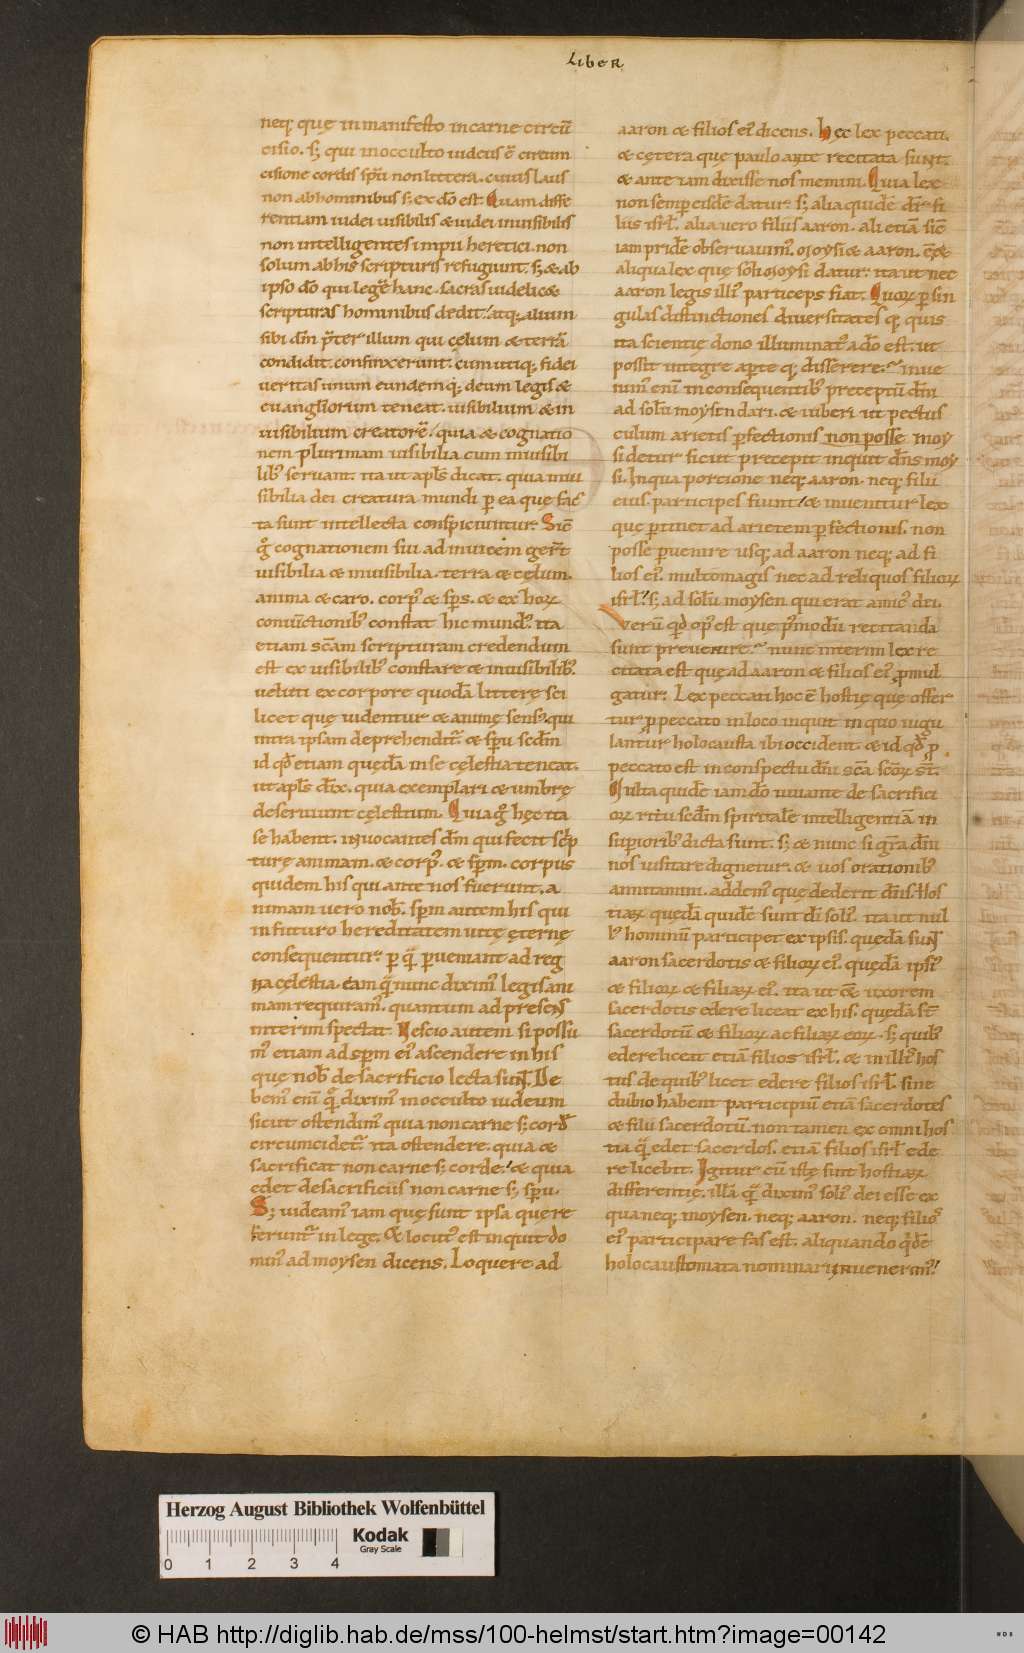 Liber
neq; quę in manifesto in carne circū
cisio. s; qui in occulto iudeus ē circum
cisione cordis spū non littera. cuius laus
non ab hominibus s; ex dō est. Quam diffe
rentiam iudei uisibilis & iudei inuisibilis
non intelligentes impii heretici. non
solum ab his scripturis refugiunt. s; & ab
ipso dō qui legē hanc. sacras uidelic&
scripturas hominibus dedit. atq; alium
sibi dm̄ p̄ter illum qui cęlum & terrā
condidit. confinxerunt. cum utiq; fidei
ueritas unum eundemq; deum legis &
euangliorum teneat. uisibilium & in
uisibilium creatorē. quia & cognatio
nem plurimam uisibilia cum inuisibi
lib; seruant. ita ut apl's dicat. quia inui
sibilia dei creatura mundi p ea quę fac
ta sunt intellecta conspiciuntur. Sic
g̊ cognationem sui ad inuicem ger̄t
uisibilia & inuisibilia. terra & cęlum.
anima & caro. corp' & sp̄s. & ex hoꝝ
coniūctionib; constat hic mund'. ita
etiam scām scripturam credendum
est ex uisibilib; constare & inuisibilib;
ueluti ex corpore quodā litterę sci
licet quę uidentur & animę sens' qui
intra ipsam deprehendit̄. & spū scdm̄
id qd̄ etiam quędā in se cęlestia teneat.
ut apl's dix̄. quia exemplari & umbrę
deseruiunt cęlestium. Quia g̊ hęc ita
se habent. inuocantes dm̄ qui fecit sc̄p
turę animam. & corp'. & spm̄. corpus
quidem his qui ante nos fuerunt. a
nimam uero nob̄. spm̄ autem his qui
in futuro hereditatem uitę ęternę
consequentur. p q̄ pueniant ad reg
na cęlestia. eam q̄ nunc diximꝰ legis ani
mam requiramꝰ. quantum ad presens
interim spectat. Nescio autem si possu
mꝰ etiam ad spm̄ eiꝰ ascendere in his
quę nob̄ de sacrificio lecta sunt. De
bemꝰ eni q̄ diximꝰ in occulto iudeum
sicut ostendimꝰ quia non carne s; cord̄
circumcidet̄. ita ostendere. quia &
sacrificat non carne s; corde. & quia
edet de sacrificiis non carne s; spū.
S; uideamꝰ iam quę sunt ipsa quę re
feruntr in lege. & locutꝰ est inquit do
minꝰ ad moysen dicens. Loquere ad
aaron & filios eiꝰ dicens. hęc lex peccati.
& cętera quę paulo ante recitata sunt.
& ante iam dixisse nos memini. Quia lex
non semp eisdē datur. s; alia quidē dr̄ fi
liis isrl'. alia uero filiis aaron. alî etiā sic
iam pridē obseruauimꝰ. moysi & aaron. ē &
aliqua lex quę soli moysi datur. ita ut nec
aaron legis illiꝰ particeps fiat. Quoꝝ p sin
gulas distinctiones diuersitates q; quis
ita scientię dono illuminatꝰ a dō est. ut
possit integre apte q; disserere. inue
nimꝰ enī in consequentib; preceptū dm̄
ad solū moysen dari. & iuberi ut pectus
culum arietis pfectionis non posse moy
si detur sicut precepit inquit dn̄s moy
si. In qua portione neq; aaron. neq; filii
eius. participes fiunt. & inuenitur lex
quę ptinet ad arietem pfectionis. non
posse puenire usq; ad aaron neq; ad fi
lios eiꝰ. multomagis nec ad reliquos filioꝝ
isrl'. s; ad solū moysen qui erat amicꝰ dei.
Verū qd̄ opꝰ est quę p̄modū recitanda
sunt preuenire. nunc interim lex re
citata est quę ad aaron & filios eiꝰ promul
gatur. Lex peccati hoc ē hostię quę offer
tur p peccato in loco inquit in quo iugu
lantur holocausta ibi occident. & id qd̄ p
peccato est in conspectu dn̄i scā scōꝝ st̄.
Iuxta quidē iam dō iuuante de sacrifici
oꝝ ritu scdm̄ spiritalē intelligentiā in
supiorib; dicta sunt. s; & nunc si gr̄a dn̄i
nos uisitare dignetur. & uos orationib;
annitamini. addemꝰ quę dederit dn̄s. Hos
tiaꝝ quędā quidē sunt di solꝰ. ita ut nul
lꝰ hominū participet ex ipsis. quędā sunt
aaron sacerdotis & filioꝝ eiꝰ. quędā ipsiꝰ
& filioꝝ & filiaꝝ eiꝰ. ita ut & uxorem
sacerdotis edere liceat ex his. quędā st̄
sacerdotū & filioꝝ ac filiaꝝ eoꝝ. s; quib;
edere liceit etiā filios isrl'. & in illiꝰ hos
tiis de quibꝰ licet edere filios isrl' sine
dubio habent participiū etiā sacerdotes
& filii sacerdotū. non tamen ex omni hos
tia q̄ edet sacerdos. etiā filios isrl' ede
re licebit. Igitur cū istę sint hostiaꝝ
differentię. illā q̄ diximꝰ soliꝰ dei esse ex
qua neq; moysen. neq; aaron. neq; filioꝰ
eiꝰ participare fas est. aliquando qdē
holocaustomata nominari inuenermꝰ.
Herzog August Bibliothek Wolfenbüttel
0 1 2 3 4
Kodak
Gray Scale
© HAB http://diglib.hab.de/mss/100-helmst/start.htm?image=00142